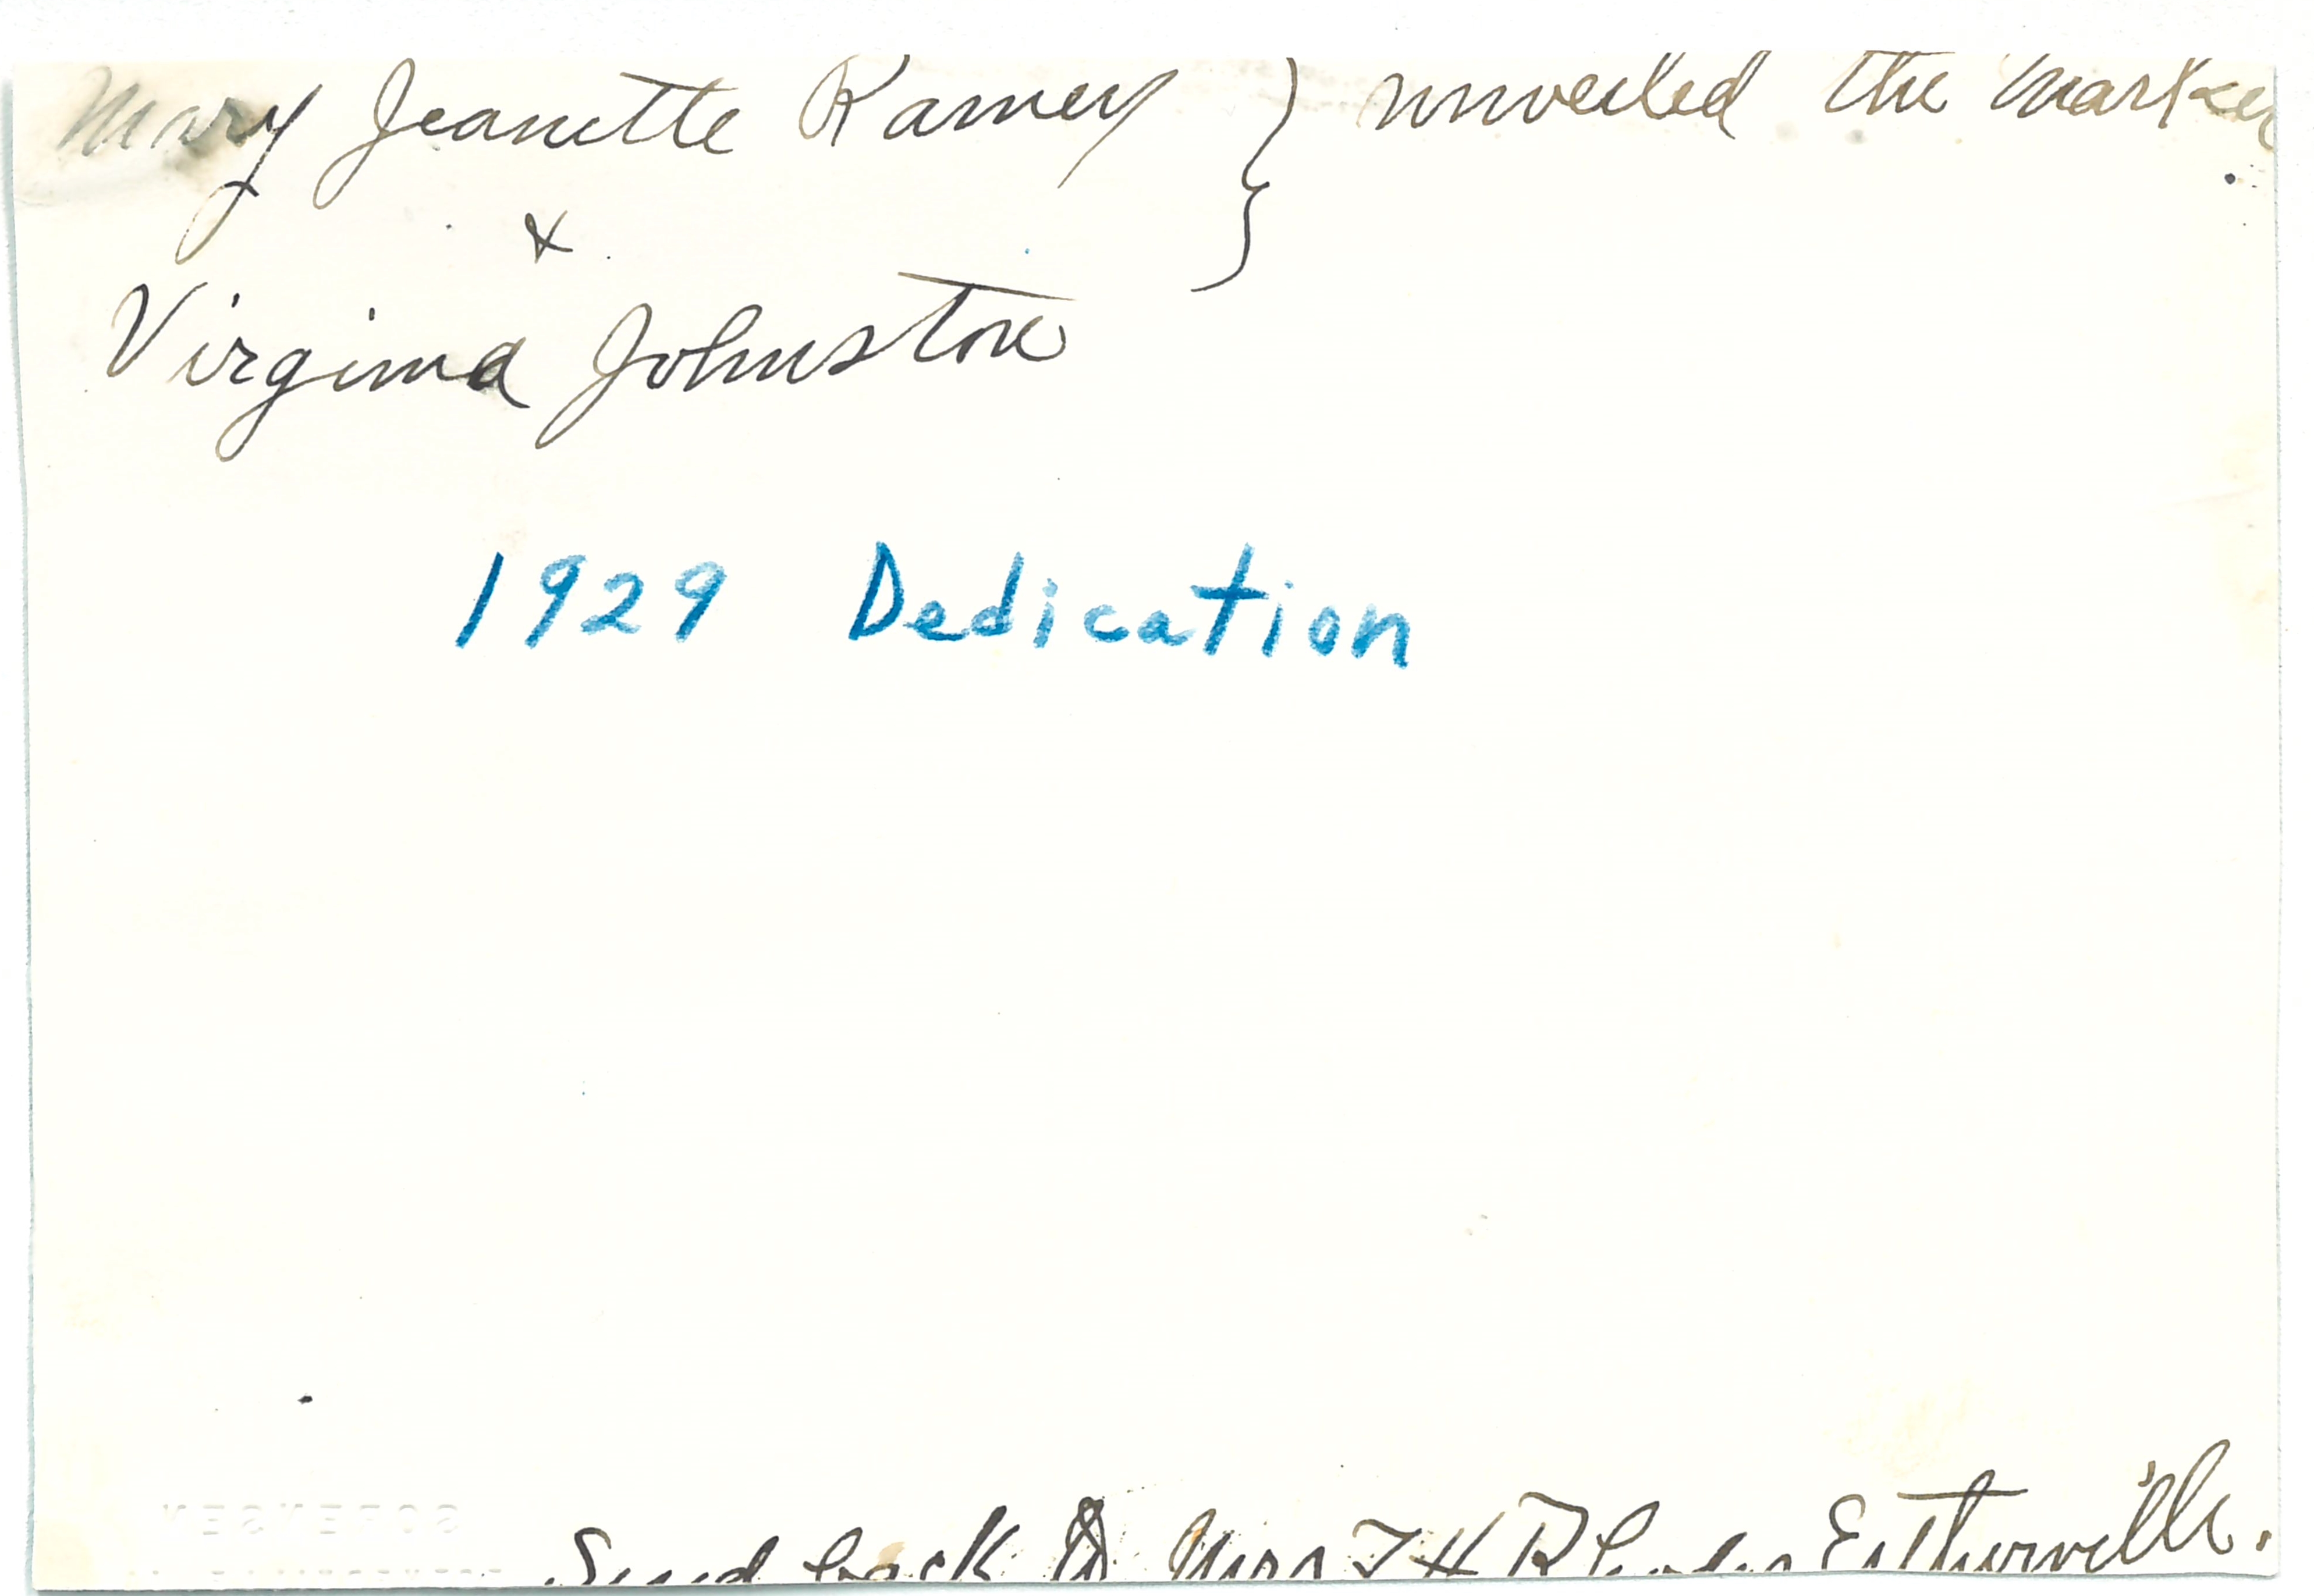 Mary Jeanette Ramey } unveiled the marker
&
Virginia Johnston
1929 Dedication
Send back to Mrs F H Rhodes Estherville.